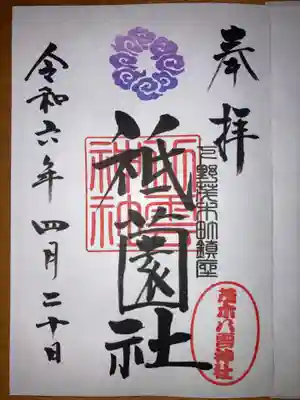 奉拝
下野茂木町鎮座
祇園社
八雲神社
茂木八雲神社
令和六年四月二十日